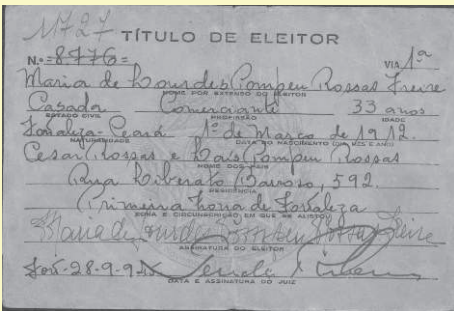 11727 TÍTULO DE ELEITOR
N.º =8776= VIA 1ª
Maria de Lourdes Pompeu Rossas Freire
NOME POR EXTENSO DO ELEITOR
Casada Comerciante 33 anos
ESTADO CIVIL PROFISSÃO IDADE
Fortaleza-Ceará 1º de Março de 1912.
NATURALIDADE DATA DO NASCIMENTO (DIA, MÊS E ANO)
Cesar Rossas e Lais Pompeu Rossas
NOME DOS PAIS
Rua Liberato Barroso, 592.
RESIDÊNCIA
Primeira Zona de Fortaleza
ZONA E CIRCUNSCRIÇÃO EM QUE SE ALISTOU
Maria de Lourdes Pompeu Rossas Freire
ASSINATURA DO ELEITOR
For. 28-9-945
DATA E ASSINATURA DO JUIZ